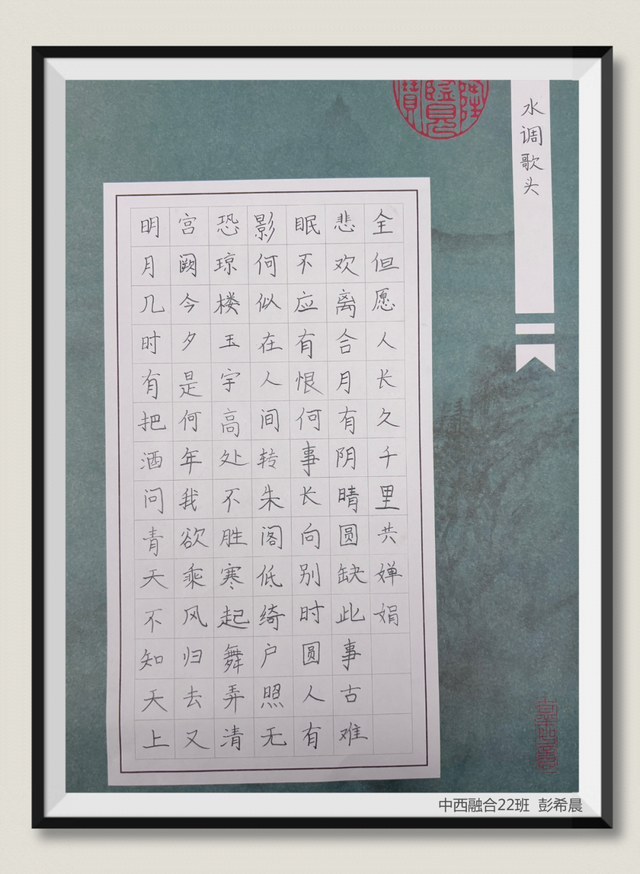 水调歌头
明月几时有把酒问青天不知天上
宫阙今夕是何年我欲乘风归去又
恐琼楼玉宇高处不胜寒起舞弄清
影何似在人间转朱阁低绮户照无
眠不应有恨何事长向别时圆人有
悲欢离合月有阴晴圆缺此事古难
全但愿人长久千里共婵娟
中西融合22班 彭希晨